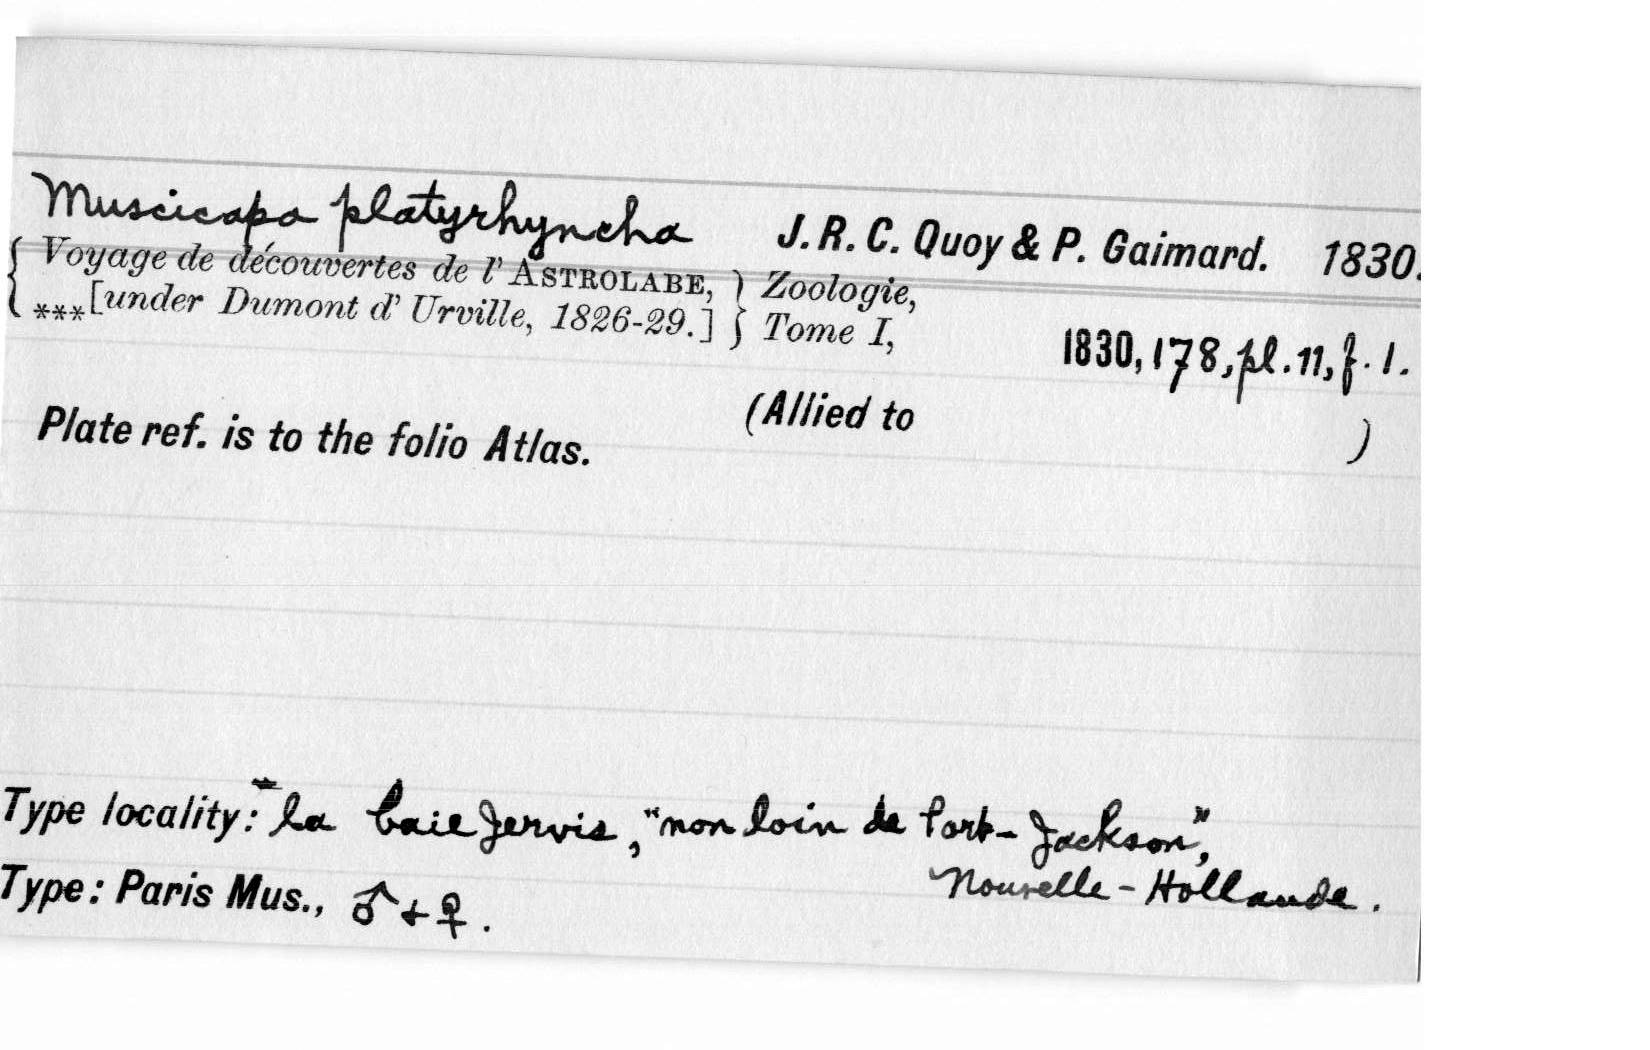 Muscicapa platyrhyncha J. R. C. Quoy & P. Gaimard. 1830.
{ Voyage de découvertes de l' ASTROLABE, } Zoologie,
{ ***[under Dumont d' Urville, 1826-29.] } Tome I,
1830, 178, pl. 11, f. 1.
(Allied to )
Plate ref. is to the folio Atlas.
Type locality: la baie Jervis, "non loin de Port-Jackson",
Nouvelle-Hollande.
Type: Paris Mus., ♂ + ♀.